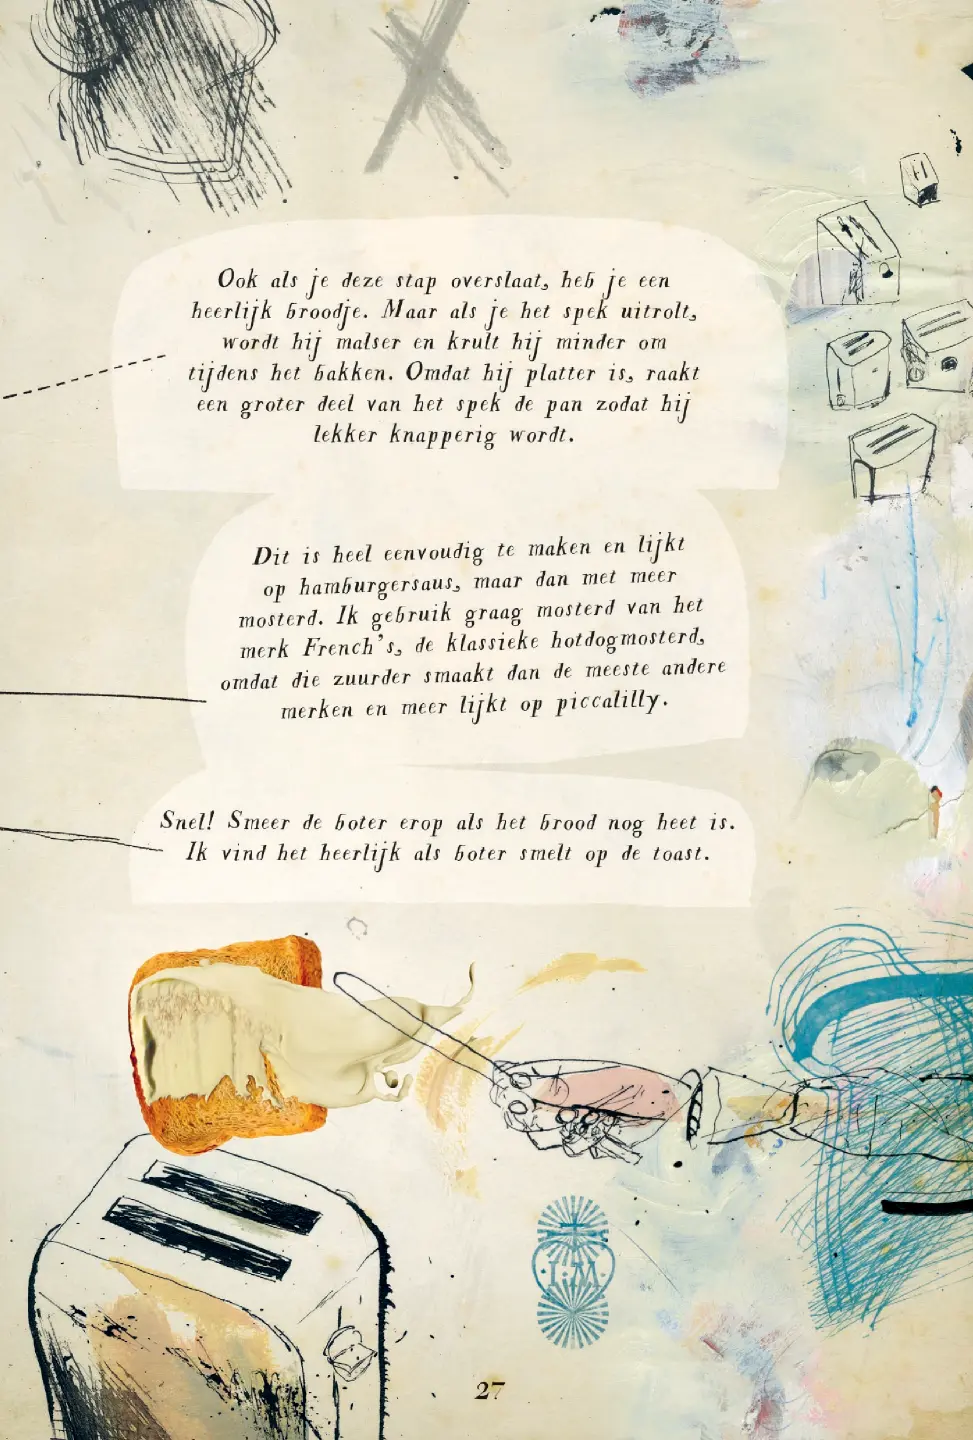 Ook als je deze stap overslaat, heb je een
heerlijk broodje. Maar als je het spek uitrolt,
wordt hij malser en krult hij minder om
tijdens het bakken. Omdat hij platter is, raakt
een groter deel van het spek de pan zodat hij
lekker knapperig wordt.
Dit is heel eenvoudig te maken en lijkt
op hamburgersaus, maar dan met meer
mosterd. Ik gebruik graag mosterd van het
merk French's, de klassieke hotdogmosterd,
omdat die zuurder smaakt dan de meeste andere
merken en meer lijkt op piccalilly.
Snel! Smeer de boter erop als het brood nog heet is.
Ik vind het heerlijk als boter smelt op de toast.
27